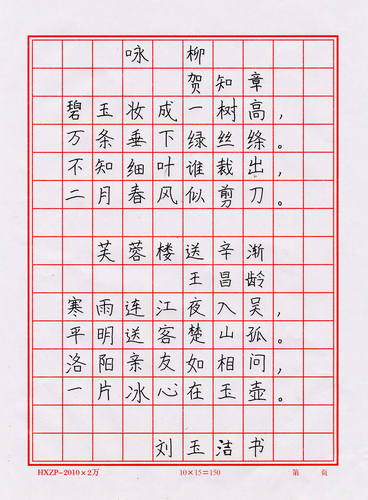 咏 柳
贺知章
碧玉妆成一树高，
万条垂下绿丝绦。
不知细叶谁裁出，
二月春风似剪刀。
芙蓉楼送辛渐
王昌龄
寒雨连江夜入吴，
平明送客楚山孤。
洛阳亲友如相问，
一片冰心在玉壶。
刘玉洁书
HXZP-2010×2万 10×15=150 第 页